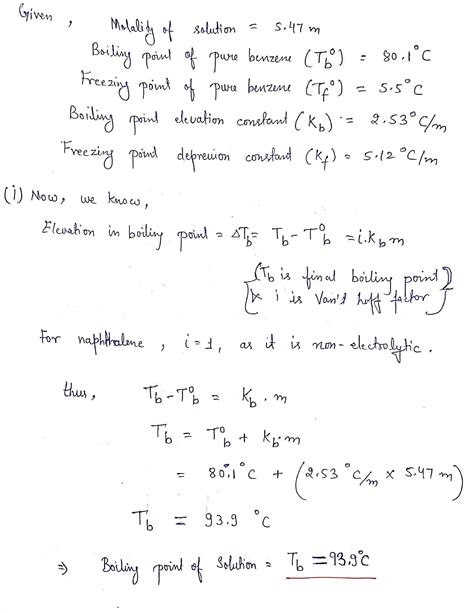 Given, Molality of solution = 5.47 m
Boiling point of pure benzene (T_b^o) = 80.1°C
Freezing point of pure benzene (T_f^o) = 5.5°C
Boiling point elevation constant (K_b) = 2.53°C/m
Freezing point depression constant (K_f) = 5.12°C/m
(i) Now, we know,
Elevation in boiling point = ΔT_b = T_b - T_b^o = i.K_b m
{T_b is final boiling point
& i is Van't hoff factor}
For naphthalene, i=1, as it is non-electrolytic.
thus, T_b - T_b^o = K_b . m
T_b = T_b^o + K_b.m
= 80.1°C + (2.53 °C/m × 5.47 m)
T_b = 93.9 °C
⇒ Boiling point of Solution = T_b = 93.9°C